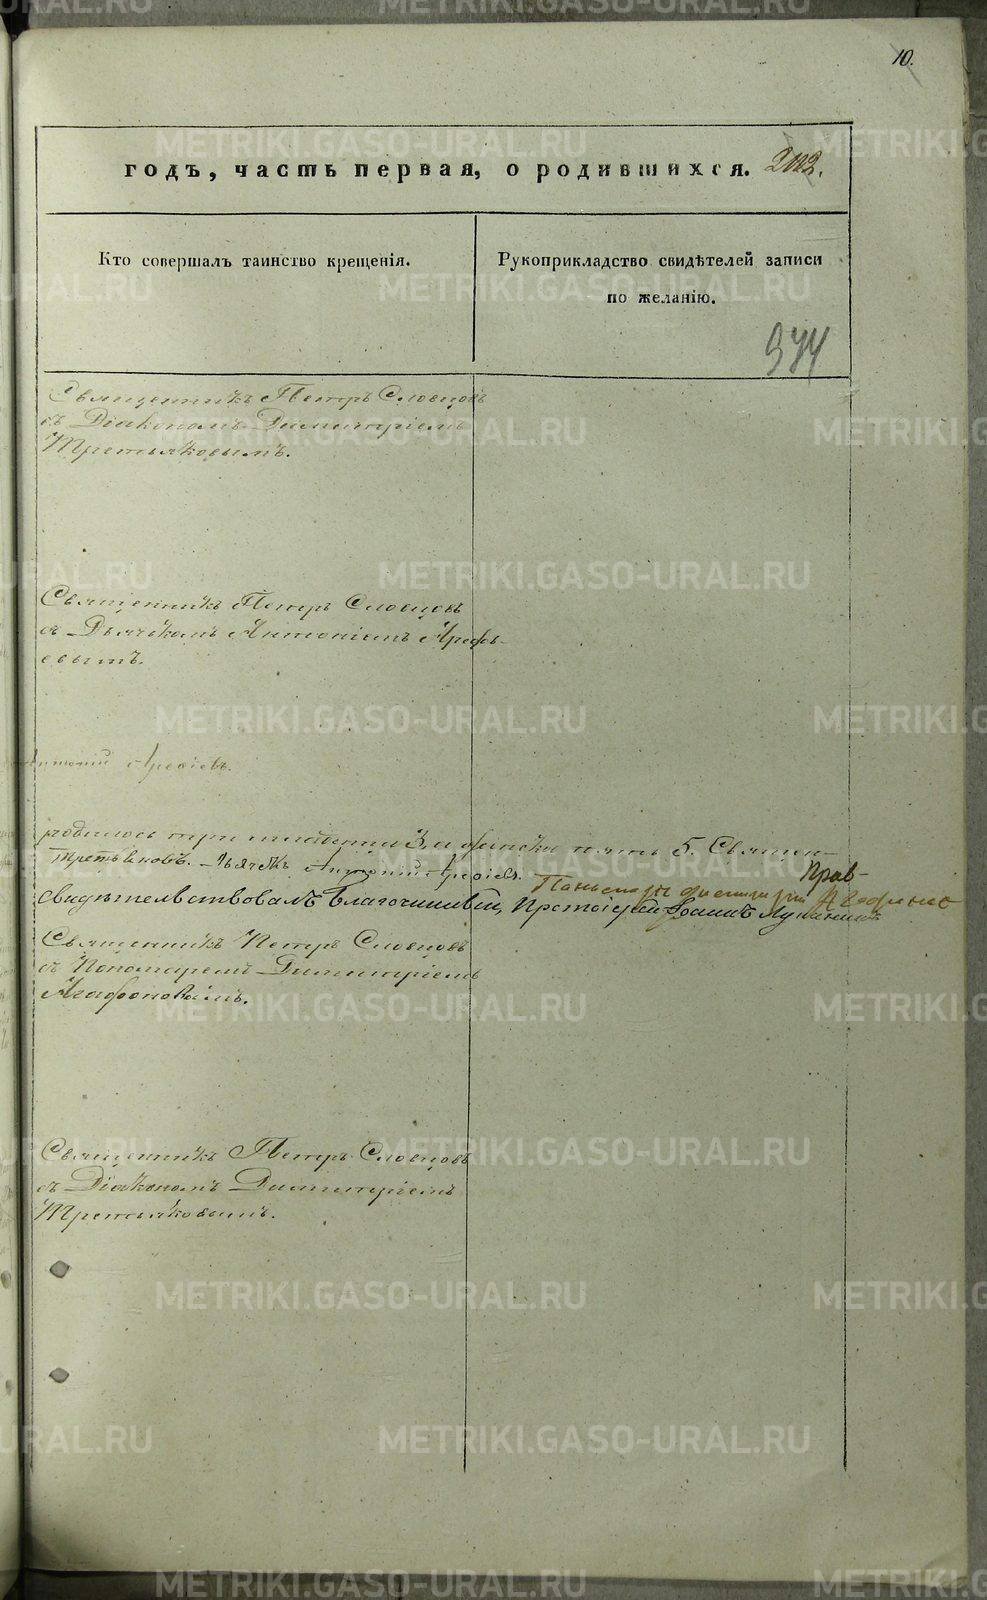 10.
годъ, часть первая, о родившихся.
Кто совершалъ таинство крещенія.
Рукоприкладство свидѣтелей записи
по желанію.
974
Священникъ Петръ Словцовъ
съ Діакономъ Димитріемъ
Третьяковымъ.
Священникъ Петръ Словцовъ
съ Дьячкомъ Антоніемъ Арефь-
евымъ.
Антоній Арефіевъ.
родилось три младенца 3, а женска пять 5. Священ-
Третьяковъ. Дьячекъ Антоній Арефіевъ.
Свидѣтельствовалъ Благочинный, Протоіерей Іоаннъ
Священникъ Петръ Словцовъ
съ Пономаремъ Димитріемъ
Агафоновымъ.
Священникъ Петръ Словцовъ
съ Діакономъ Димитріемъ
Третьяковымъ.
METRIKI.GASO-URAL.RU